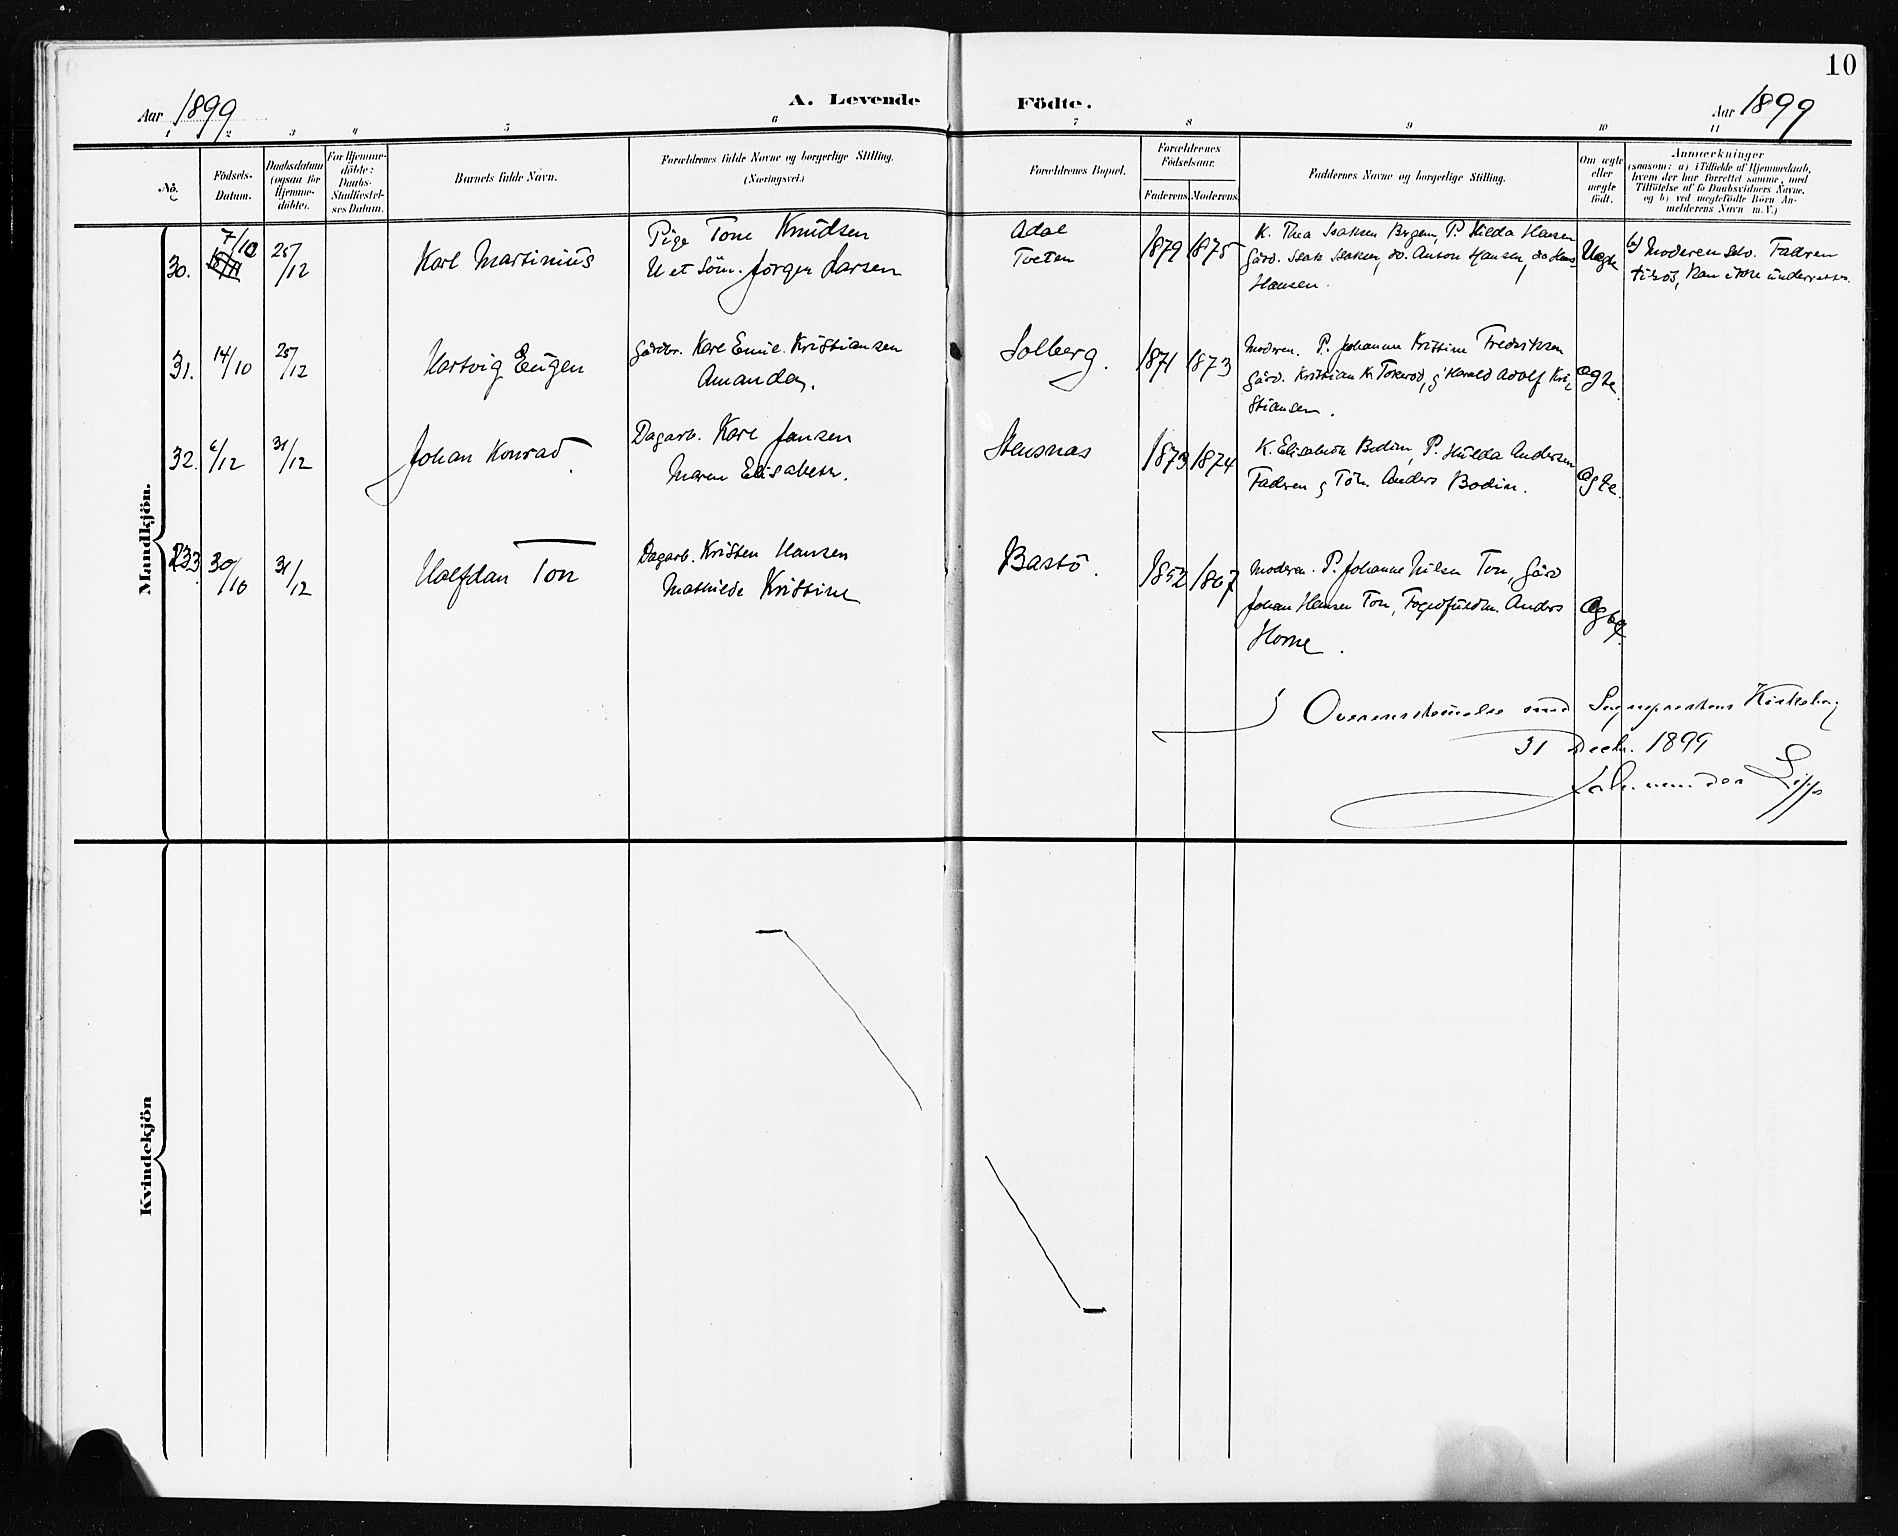 10
Aar 1899
A. Levende
Födte.
Aar 1899
1 2 3 4 5 6 7 8 9 10 11
No.
Födsels-
Datum.
Daabsdatum
(ogsaa for
Hjemme-
döbte).
For Hjemme-
döbte:
Daabs-
Stadfæstel-
ses Datum.
Barnets fulde Navn.
Forældrenes fulde Navne og borgerlige Stilling.
(Næringsvei.)
Forældrenes Bopæl.
Forældrenes
Födselsaar.
Faderens Moderens
Faddernes Navne og borgerlige Stilling.
Om ægte
eller
uægte
födt.
Anmærkninger
(saasom: a) i Tilfælde af Hjemmedaab,
hvem der har forrettet samme, med
Tilföielse af to Daabsvidners Navne,
og b) ved uægtefödte Börn An-
melderens Navn m. V.)
Mandkjön.
30. 7/10 25/12 Karl Martinius
Pige Tone Knudsen
U et Söm. Jörgen Larsen
Adal
Tveten
1879 1875
K. Thea Isaksen Bergem, P. Hilda Hansen
Gård. Isak Isaksen, do. Anton Hansen, do Hans
Hansen.
Uægte
b) Moderen selv. Fadren
tilsös, kan ikke underrettes.
31. 14/10 25/12 Hartvig Eugen
Gårdbr. Karl Emil Kristiansen
Amanda.
Solberg.
1871 1873
Moderen. P. Johanne Kristine Fredriksen
Gård. Kristian K. Tokerød, g Harald Adolf Kri-
stiansen.
ægte
32. 6/12 31/12 Johan Konrad.
Dagarb. Karl Jansen
Maren Elisabeth.
Stensnas
1873 1874
K. Elisabeth Bodin, P. Hulda Andersen
Fadren g Töm. Anders Bodin.
ægte.
33 30/10 31/12 Halfdan Ton
Dagarb. Kristen Hansen
Mathilde Kristine
Bastö.
1852 1867
Moderen. P. Johanne Nilsen Ton, Gård
Johan Hansen Ton, Fogedfuldm. Anders
Horne.
ægte
I Overensstemmelse med Sogneprestens Kirkebog
31 Decbr. 1899
Kvindekjön